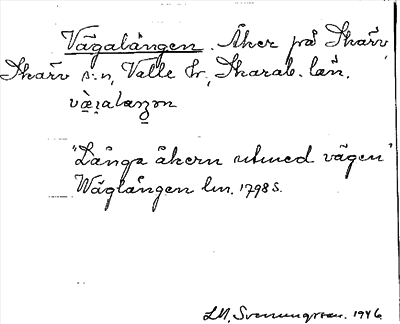 Vägalången. Åker på Skärv,
Skärv s:n, Valle hr, Skarab. län.
væ̀ɡalaŋən
"Långa åkern utmed vägen"
Wäglången lm. 1798 s.
LM, Svenungsson. 1946.